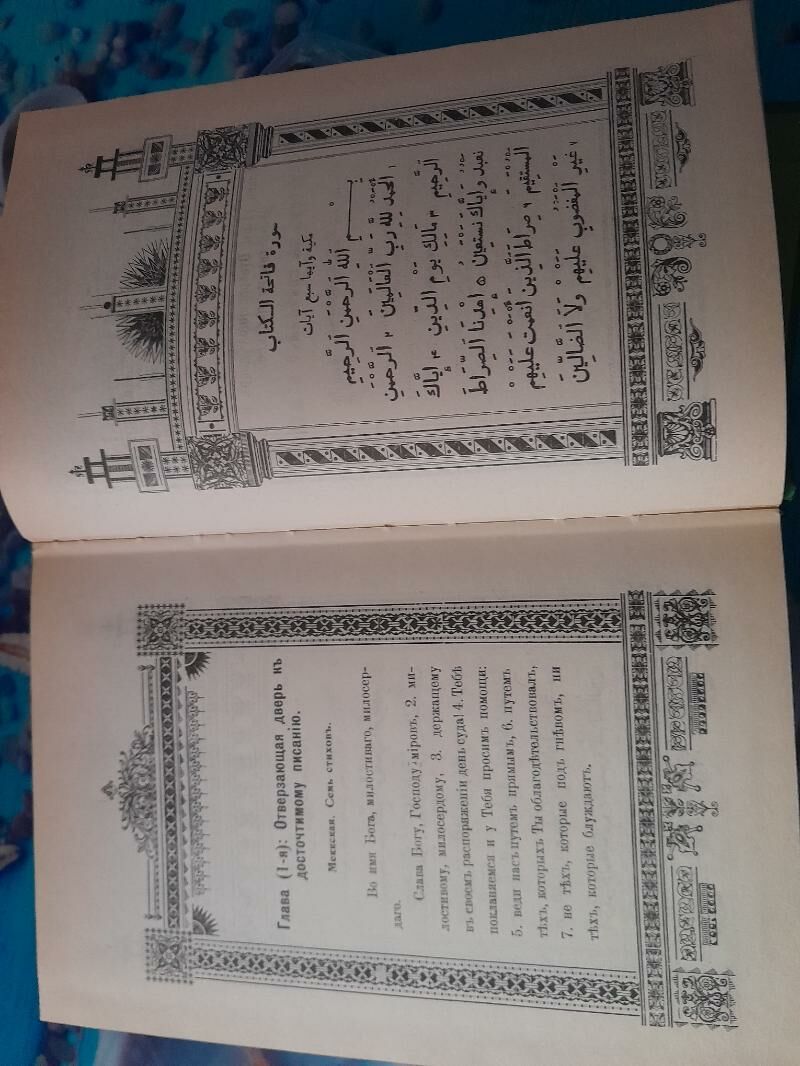 Глава (1-я): Отверзающая дверь къ
досточтимому писанію.
Меккская. Семь стиховъ.
Во имя Бога, милостиваго, милосер-
даго.
Слава Богу, Господу міровъ, 2. ми-
лостивому, милосердому, 3. держащему
въ своемъ распоряженіи день суда! 4. Тебѣ
покланяемся и у Тебя просимъ помощи:
5. веди насъ путемъ прямымъ, 6. путемъ
тѣхъ, которыхъ Ты облагодѣтельствовалъ,
7. не тѣхъ, которые подъ гнѣвомъ, ни
тѣхъ, которые блуждаютъ.
سورة فاتحة الكتاب
مكية وآيها سبع آيات
بِسْمِ
اللهِ الرَّحْمٰنِ الرَّحِيمِ
١ الْحَمْدُ لِلّٰهِ رَبِّ الْعَالَمِينَ ٢ الرَّحْمٰنِ
الرَّحِيمِ ٣ مَالِكِ يَوْمِ الدِّينِ ۴ إِيَّاكَ
نَعْبُدُ وَإِيَّاكَ نَسْتَعِينُ ٥ اِهْدِنَا الصِّرَاطَ
الْمُسْتَقِيمَ ٦ صِرَاطَ الَّذِينَ أَنْعَمْتَ عَلَيْهِمْ
٧ غَيْرِ الْمَغْضُوبِ عَلَيْهِمْ وَلَا الضَّالِّينَ